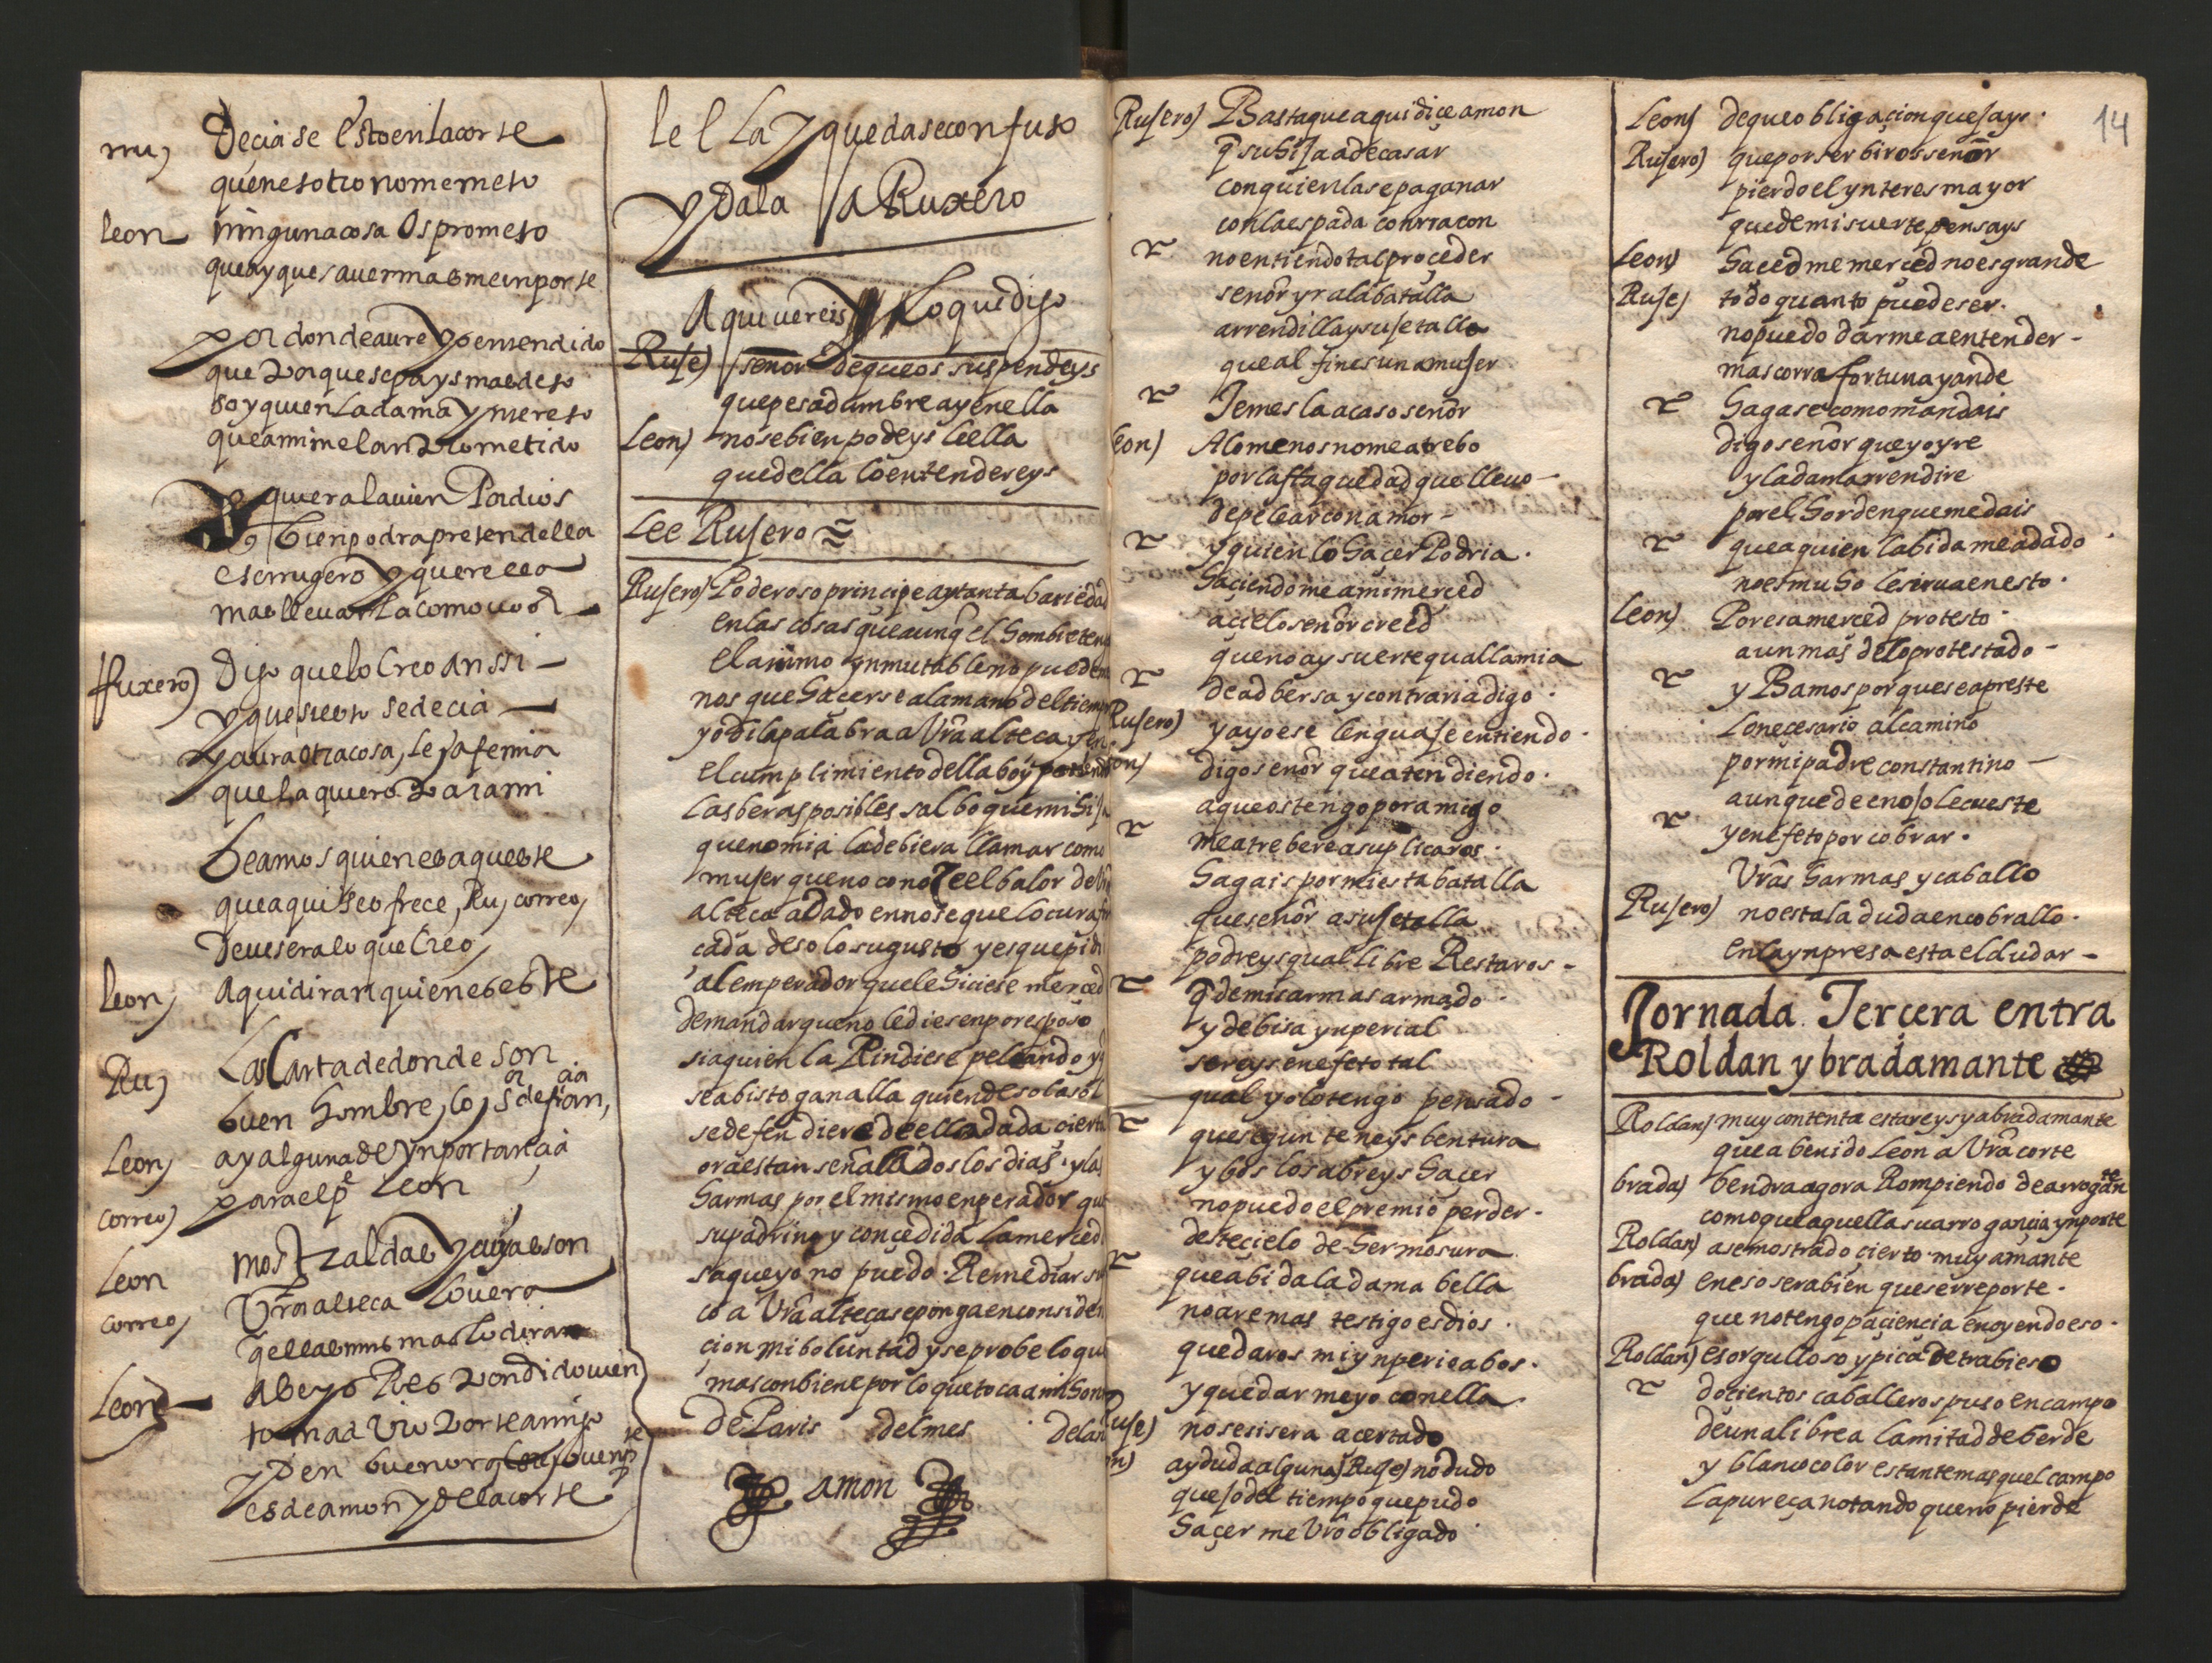 ru) Decia se esto en la corte
que nesotro no me meto
leon ninguna cosa os prometo
que ay que sauer mas me inporte
por donde aure yo entendido
que porque sepays mas desto
soy quien la dama y mereto
que a mi me lan prometido
quiera la uien Por dios
bien podra pretendella
es rrugero y querella
mas lleuarla como uos
Ruxero) Digo que lo creo anssi
y que si esto se decia
y aura otra cosa, le
que la quiero para mi
beamos quien es aqueste
que aqui se ofrece, Ru, correo,
deue ser a lo que creo,
leon, aqui diran quien es este
Ru, Las Carta de donde son
buen hombre,
Leon, ay alguna de ynportancia
correo) para el pe Leon
Leon mostraldas y cuyas son
correo, Vra alteca lo uera
qellas mismas lo diran
Leon abeys Pues
tomad
y en buen ora
es de amon y de la corte
leella y quedase confuso
y Dala a Ruxero
Aqui uereis lo que digo
Ruse) señor de que os suspendeys
que pesadumbre ay en ella
Leon) no se bien podeys leella
que della lo entendereys
Lee Rusero
Rusero) Poderoso principe ay tanta bariedad
en las cosas que aunq el hombre tena
el animo ynmutable no puede
nos que hacerse a la mano del tiempo
yo di la palabra a Vra alteca y en
el cumplimiento della boy
las beras posibles salbo que mi hija
que no mia la debiera llamar como
muger que no conoce el balor de
alteca a dado en no se que locura
cada de solo su gusto y es que pidi
al emperador que le hiciese merced
de mandar que no le diesen por esposo
si a quien la Rindiese peleando y
sea bisto ganalla quien de sol a sol
se defendiere de ella dada cierta
ora estan señallados los dias. y las
harmas por el mismo enperador que
su padrino y concedida la merced
sa que yo no puedo. Remediar
co a Vra alteca se ponga en consider
cion mi boluntad y se probe lo que
mas conbiene por lo que toca a mi honor
De Paris del mes de
amon
Rusero) Basta que aqui dice amon
q su hija a de casar
con quien la sepa ganar
con la espada contra con
no entiendo tal proceder
señor yr a la batalla
a rrendilla y sujetalla
que al fin es una muger
Temesla acaso señor
leon) A lo menos no me atrebo
por la flaquedad que lleuo
de pelear con amor
y quien lo hacer Podria.
haciendome a mi merced
a cielo señor creed
que no ay suerte qual la mia
de adbersa y contraria digo.
Rusero) ya yo ese lenguaje entiendo.
leon) digo señor que atendiendo.
a que os tengo por amigo
me atrebere a suplicaros.
hagais por mi esta batalla
que señor a sujetalla
podreys qual libre Restaros
q de mis armas armado.
y debisa ynperial
sereys en efeto tal
qual yo lo tengo pensado
que segun teneys bentura
y bos lo sabreys hacer
no puedo el premio perder.
deste cielo de hermosura
que abida la dama bella
no are mas testigo es dios.
que daros mi ynperio a bos.
y quedarme yo con ella
Ruse) no se si sera acertado
leon) ay duda alguna) Ruge) no dudo
que so del tiempo que pudo
hacer me Vro obligado
14
Leon) de que obligacion que jayo.
Rusero) que por serbiros señor
pierdo el ynteres mayor
que de mi suerte pensays
Leon) haced me merced no es grande
Ruse) todo quanto puede ser.
no puedo darme a entender
mas corra fortuna y ande
hagase como mandais
digo señor que yo yre
y la dama rrendire
por el horden que me dais
que a quien la bida me a dado
no es muho le sirua en esto.
Leon) Por esa merced protesto.
aun mas de lo protestado
y Bamos por que se apreste
lo necesario al camino
por mi padre constantino
aunque de enojo le cueste
y en efeto por cobrar.
Vras harmas y caballo
Rusero) no esta la duda en cobrallo.
en la ynpresa esta el dudar
Jornada. Tercera entra
Roldan y bradamante
Roldan) muy contenta estareys ya bradamante
que a benido Leon a Vra corte
brada) bendra agora Rompiendo de arrogante
como que aquella su arrogancia ynporte
Roldan) a se mostrado cierto muy amante
brada) en eso sera bien que se rreporte.
que no tengo paciencia en oyendo eso.
Roldan) es orgulloso y pica de trabieso
docientos caballeros puso en campo
de una librea la mitad de berde
y blanco color estante mas quel campo
la pureca notando que no pierde